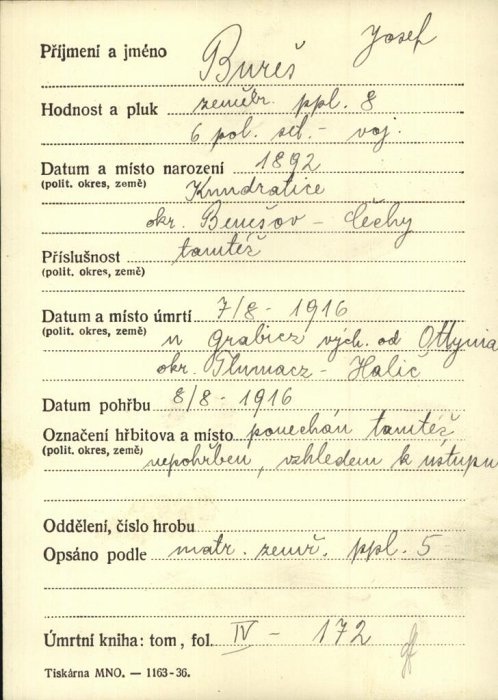 Příjmení a jméno Bureš Josef
Hodnost a pluk zeměbr. ppl. 8
6 pol. set. - voj.
Datum a místo narození 1892
(polit. okres, země) Kundratice
okr. Benešov - Čechy
Příslušnost tamtéž
(polit. okres, země)
Datum a místo úmrtí 7/8 - 1916
(polit. okres, země) u Grabicz vých. od Ottynia
okr. Tlumacz - Halič
Datum pohřbu 8/8 - 1916
Označení hřbitova a místo ponechán tamtéž
(polit. okres, země) nepohřben, vzhledem k ústupu
Oddělení, číslo hrobu
Opsáno podle matr. zemř. ppl. 5
Úmrtní kniha: tom, fol. IV - 172
Tiskárna MNO. — 1163-36.